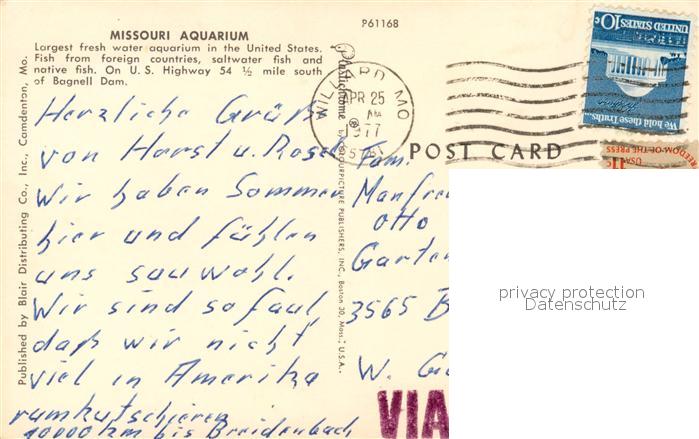 P61168
MISSOURI AQUARIUM
Largest fresh water aquarium in the United States.
Fish from foreign countries, saltwater fish and
native fish. On U.S. Highway 54 ½ mile south
of Bagnell Dam.
Published by Blair Distributing Co., Inc., Camdenton, Mo.
Herzliche Grüße
von Horst u.
Wir haben Sommer
hier und fühlen
uns sauwohl.
Wir sind so faul,
daß wir nicht
viel in Amerika
rumkutschieren
10000 km bis Breidenbach
Plastichrome ® by COLOURPICTURE PUBLISHERS, INC., Boston 30, Mass., U.S.A.
WILLARD MO
APR 25
AM
1977
POST CARD
UNITED STATES 10c
We hold these Truths...
FREEDOM OF THE PRESS
USA
Fam.
Manfred
Otto
Garten
3565 B
W. Ge
VIA
privacy protection
Datenschutz